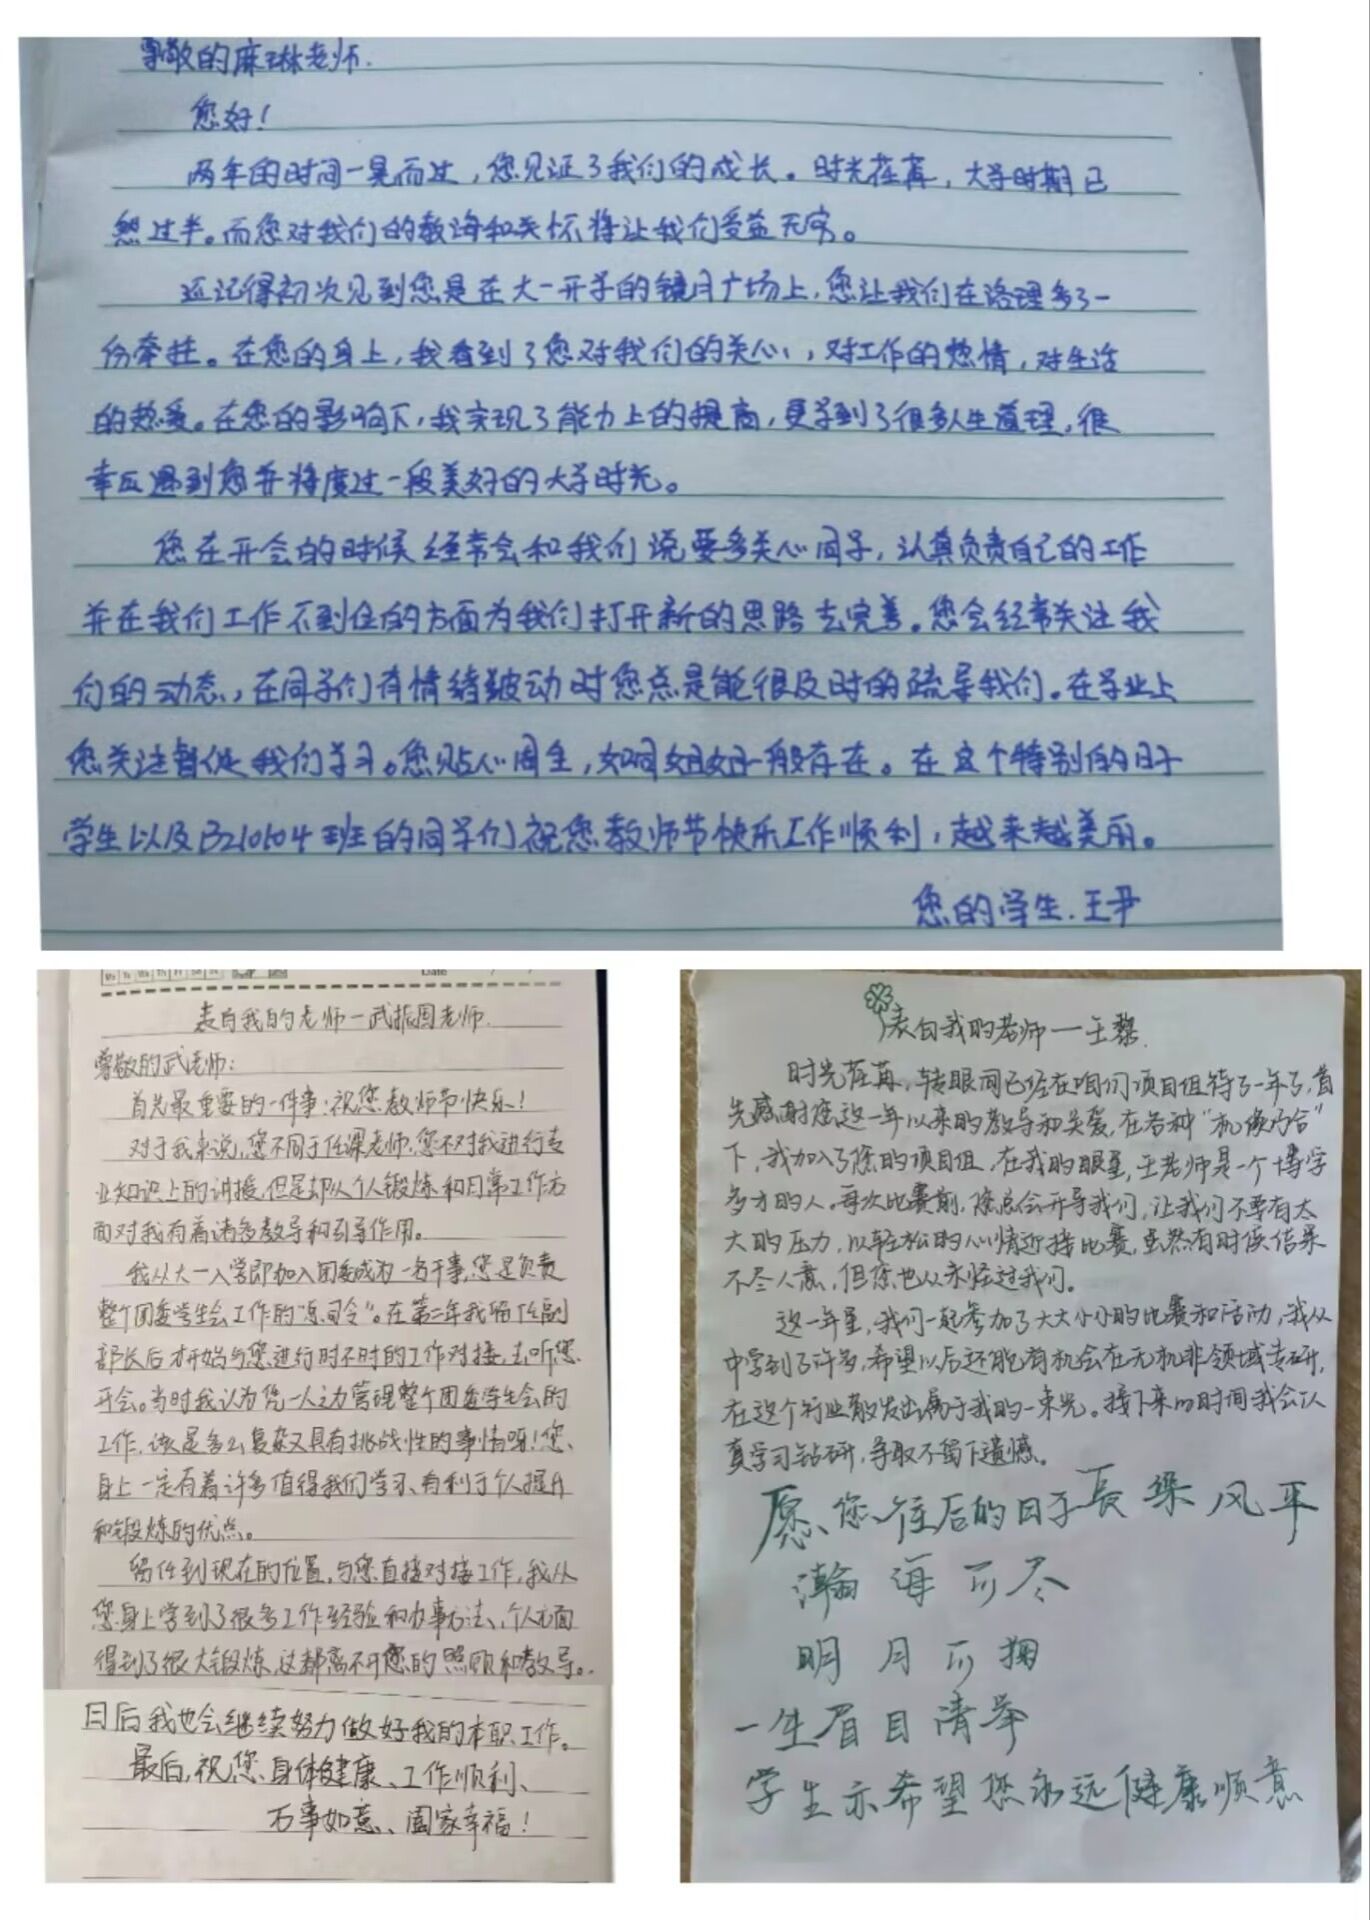 尊敬的麻琳老师.
您好！
两年的时间一晃而过，您见证了我们的成长。时光荏苒，大学时期已
然过半。而您对我们的教诲和关怀将让我们受益无穷。
还记得初次见到您是在大一开学的镜月广场上，您让我们在洛理多了一
份牵挂。在您的身上，我看到了您对我们的关心，对工作的热情，对生活
的热爱。在您的影响下，我实现了能力上的提高，更学到了很多人生道理，很
幸应遇到您并将度过一段美好的大学时光。
您在开会的时候经常会和我们说要多关心同学，认真负责自己的工作
并在我们工作不到位的方面为我们打开新的思路去完善。您会经常关注我
们的动态，在同学们有情绪皱动时您总是能很及时的疏导我们。在学业上
您关注督促我们学习。您贴心周全，如同姐姐一般存在。在这个特别的日子
学生以及B210104班的同学们祝您教师节快乐工作顺利，越来越美丽。
您的学生.王尹
Date
表白我的老师—武振国老师.
尊敬的武老师：
首先最重要的一件事：祝您教师节快乐！
对于我来说，您不同于任课老师，您不对我进行专
业知识上的讲授，但是却从个人锻炼和日常工作方
面对我有着诸多教导和引导作用。
我从大一入学即加入团委成为一名干事，您是负责
整个团委学生会工作的“总司令”。在第二年我留任副
部长后才开始与您进行时不时的工作对接，去听您
开会。当时我认为凭一人之力管理整个团委学生会的
工作，该是多么复杂又具有挑战性的事情呀！您
身上一定有着许多值得我们学习、有利于个人提升
和锻炼的优点。
留任到现在的位置，与您直接对接工作，我从
您身上学到了很多工作经验和办事方法、个人方面
得到了很大锻炼，这都离不开您的照顾和教导。
日后我也会继续努力做好我的本职工作。
最后，祝您、身体健康、工作顺利、
万事如意、阖家幸福！
表白我的老师——王黎.
时光荏苒，转眼间已经在咱们项目组待了一年了，首
先感谢您这一年以来的教导和关爱，在各种“机缘巧合”
下，我加入了您的项目组，在我的眼里，王老师是一个博学
多才的人。每次比赛前，您总会开导我们，让我们不要有太
大的压力，以轻松的心情迎接比赛，虽然有时候结果
不尽人意，但您也从未怪过我们。
这一年里，我们一起参加了大大小小的比赛和活动，我从
中学到了许多，希望以后还能有机会在无机非领域专研，
在这个行业散发出属于我的一束光。接下来的时间我会认
真学习钻研，争取不留下遗憾。
愿您往后的日子长梁风平
瀚海可尽
明月可掬
一生眉目清举
学生亦希望您永远健康顺意